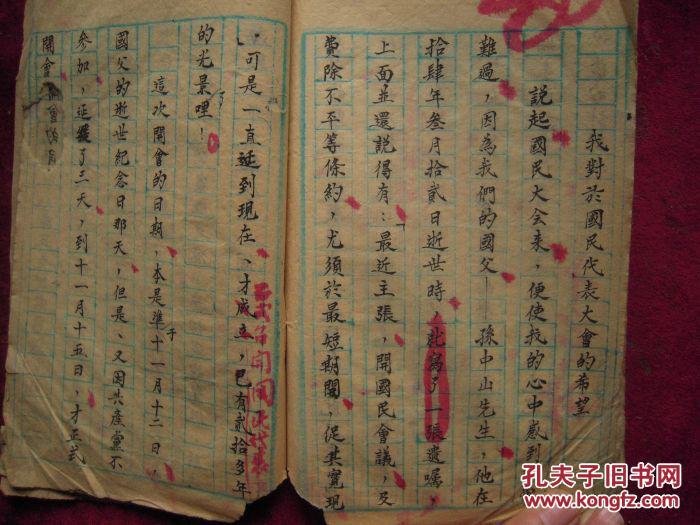 我對於國民代表大會的希望
說起國民大会来，便使我的心中感到
難過，因為我們的國父——孫中山先生，他在
拾肆年叁月拾貳日逝世時，就寫了一張遺嘱，
上面並還説得有：最近主張，開國民會議，及
費除不平等條約，尤須於最短期間，促其實現
，可是一直延到現在、才成立，已有貳拾多年
的光景哩！
這次開會的日期，本是準于十一月十二日，
國父的逝世紀念日那天，但是、又因共產黨不
參加，延緩了三天，到十一月十五日，才正式
開會
孔夫子旧书网
www.kongfz.com